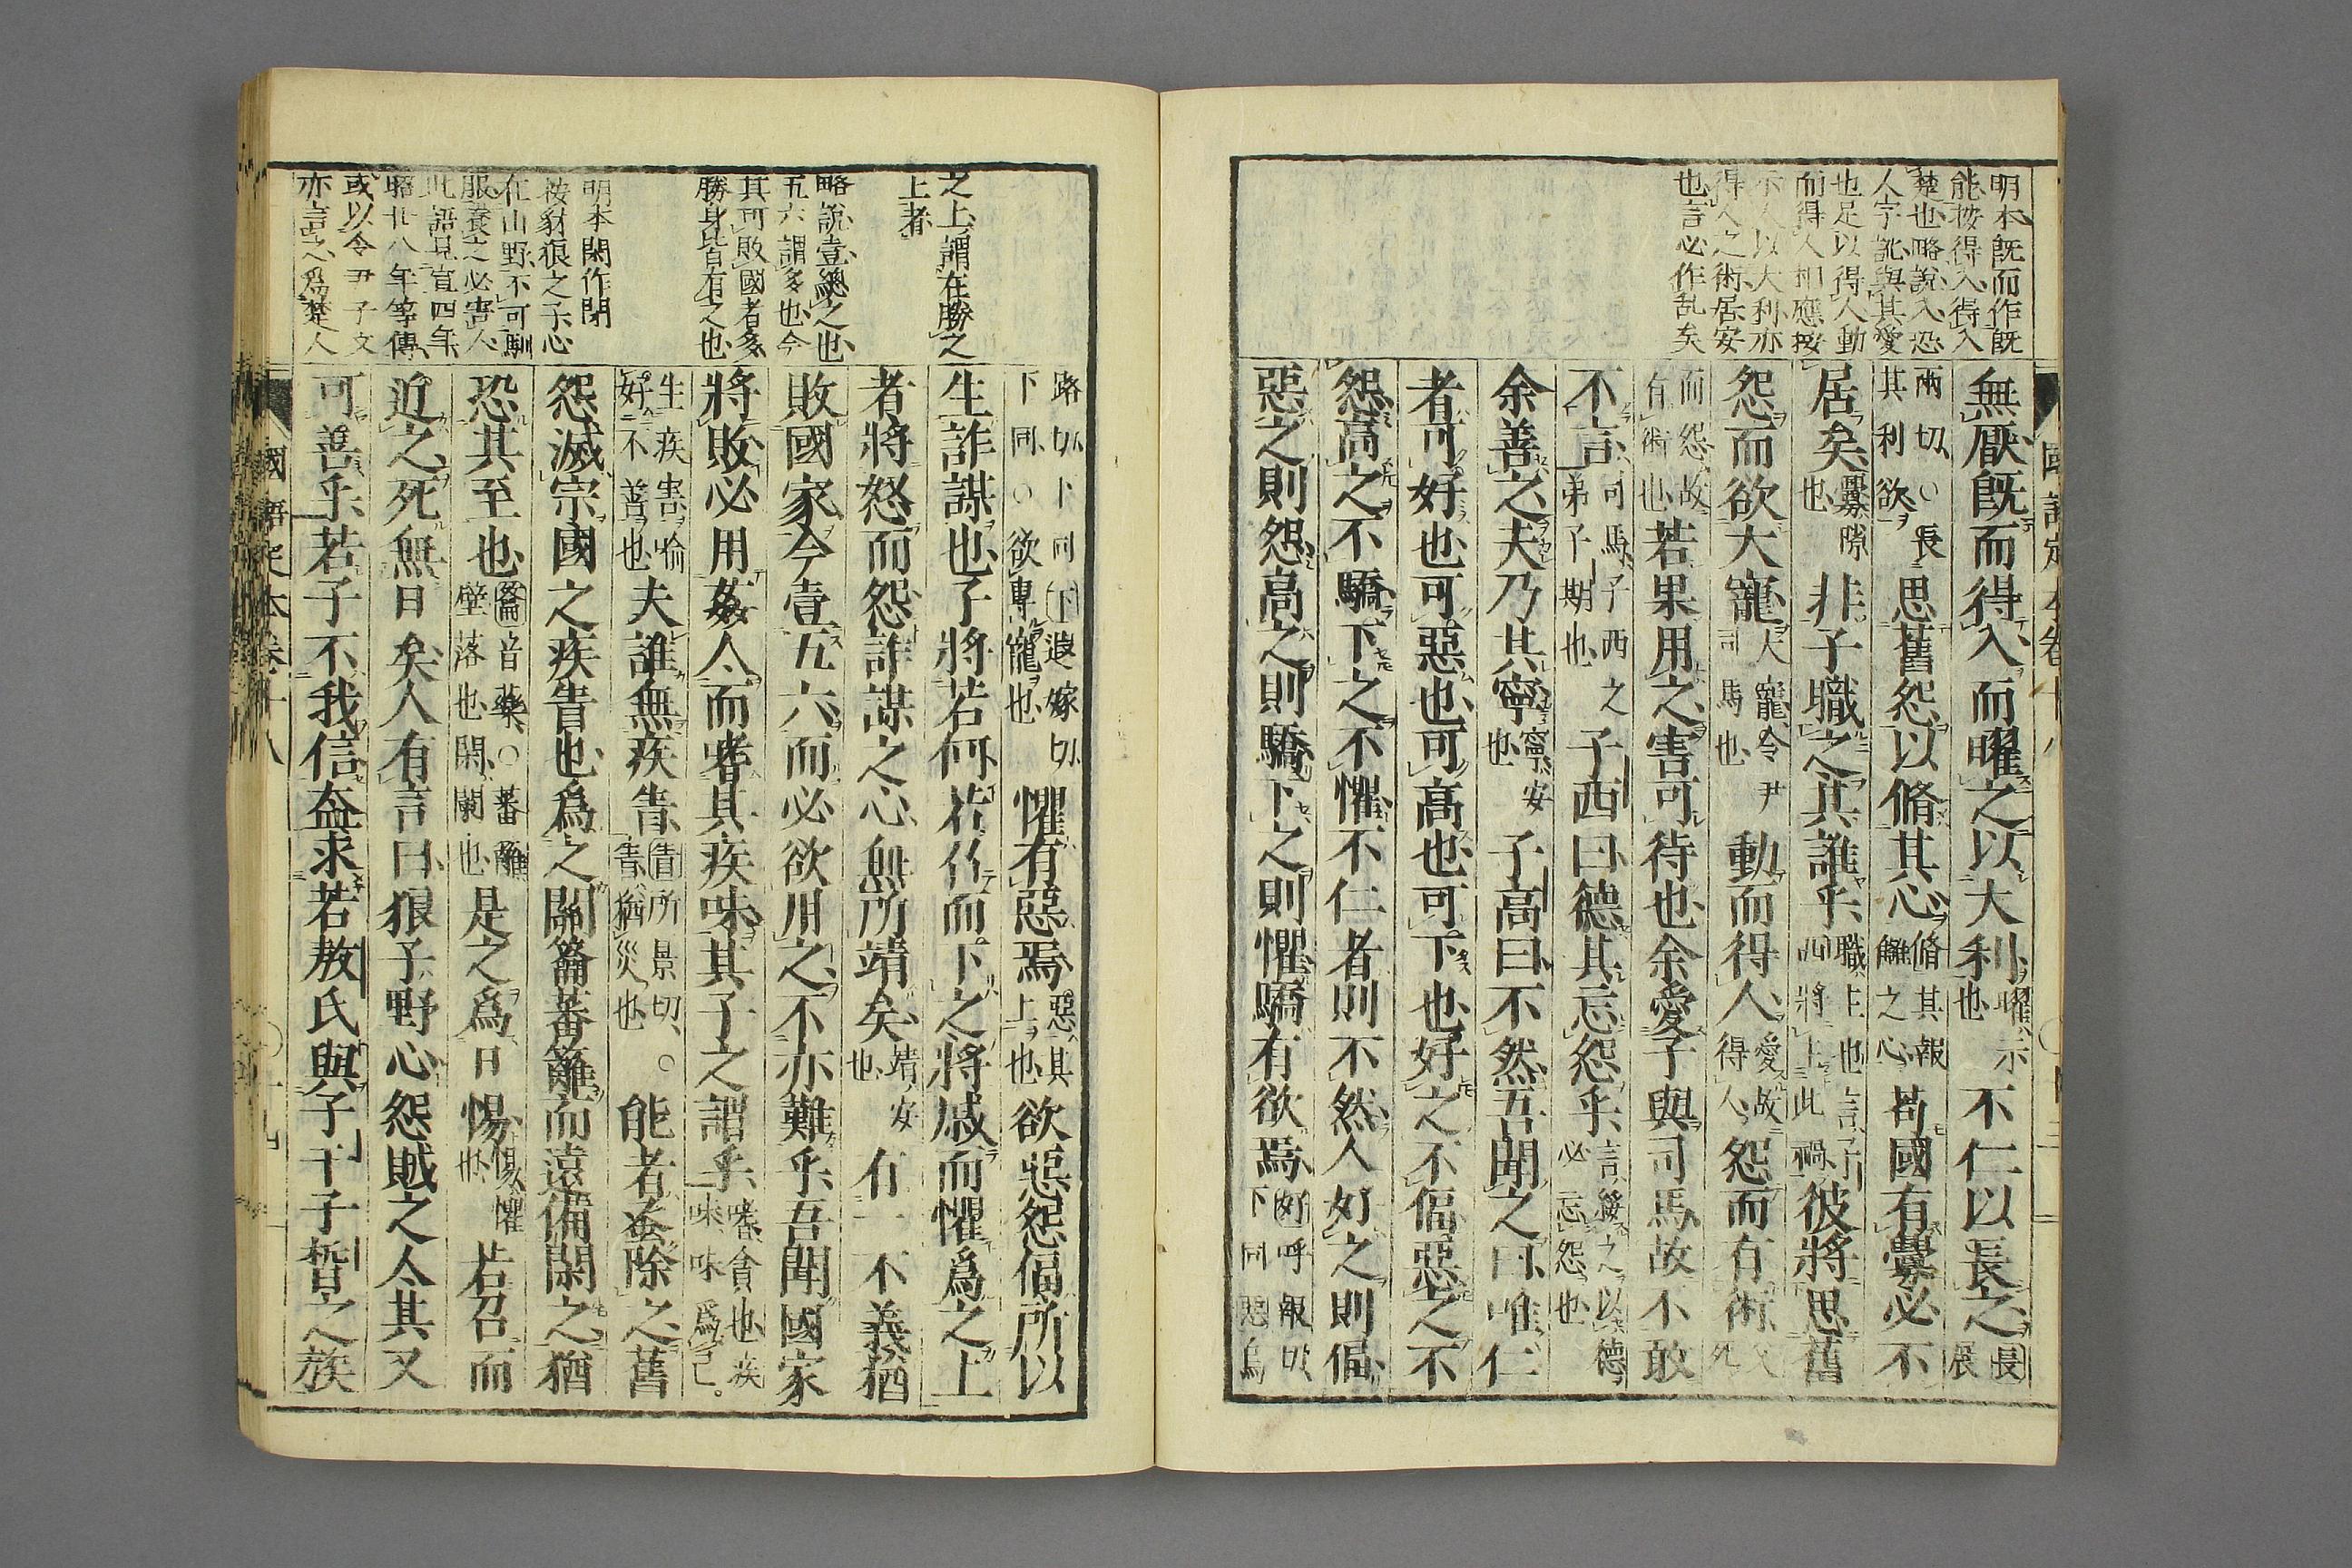 明本既而作既
能按得入得入
楚也略說入恐
人字訛與其愛
也足以得人動
而得人相應按
示人以大利亦
得人之術居安
也言必作乱矣
無厭既而得入而曜之以大利曜示也不仁以長之長展
兩切○長其利欲思舊怨以脩其心脩其報讎之心苟國有釁必不
居矣釁隙也非子職之其誰乎職主也言子西將主此禍彼將思舊
怨而欲大寵大寵令尹司馬也動而得人愛故得人怨而有術死
而怨故有術也若果用之害可待也余愛子與司馬故不敢
不言司馬子西之弟子期也子西曰德其忘怨乎言綏之以德必忘怨也
余善之夫乃其寧寧安也子高曰不然吾聞之曰唯仁
者可好也可惡也可高也可下也好之不偪惡之不
怨高之不驕下之不懼不仁者則不然人好之則偪
惡之則怨高之則驕下之則懼驕有欲焉好呼報切下同惡烏
國語定本卷十八
之上謂在勝之
上者
略說壹總之也
五六謂多也今
其可敗國者多
勝身皆有之也
明本閑作閉
按豺狼之子心
在山野不可馴
服養之必害人
此語見宣四年
昭廿八年等傳
或以令尹子文
亦言之爲楚人
路切下同下遐嫁切下同○欲專寵也懼有惡焉惡其上也欲惡怨偪所以
生詐謀也子將若何若召而下之將慼而懼爲之上
者將怒而怨詐謀之心無所靖矣靖安也有一不義猶
敗國家今壹五六而必欲用之不亦難乎吾聞國家
將敗必用姦人而嗜其疾味其子之謂乎嗜貪也疾味味爲己
生疾害喻好不善也夫誰無疾眚眚所景切○眚猶災也能者蚤除之舊
怨滅宗國之疾眚也爲之關籥蕃籬而遠備閑之猶
恐其至也籥音藥○蕃籬壁落也閑闌也是之爲日惕惕懼也若召而
近之死無日矣人有言曰狼子野心怨賊之人其又
可善乎若子不我信盍求若敖氏與子干子晳之族
國語定本卷十八